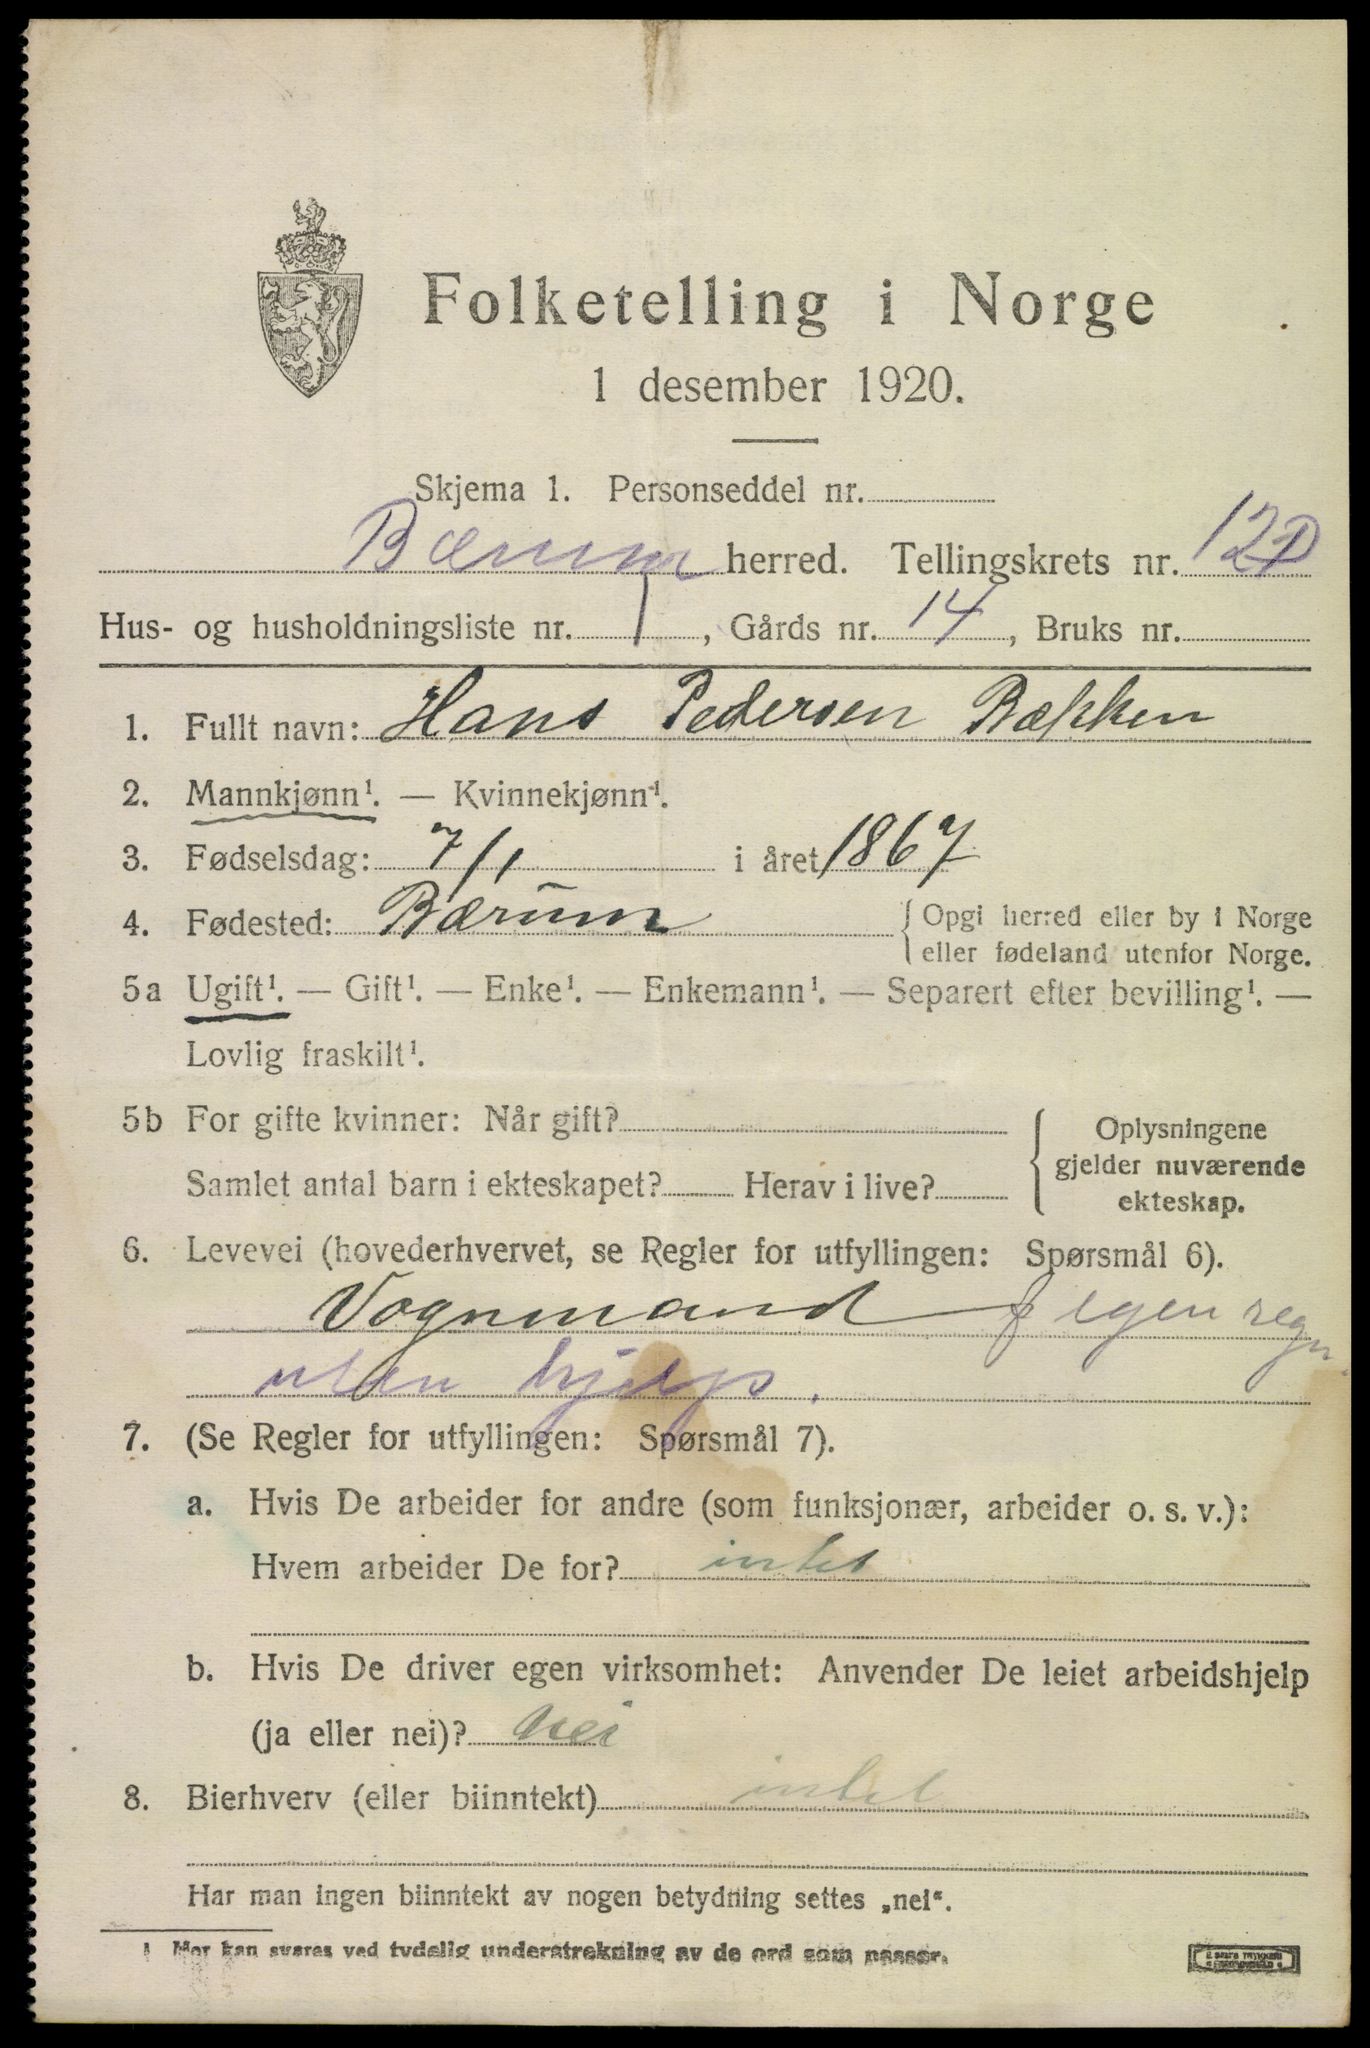 Folketelling i Norge
1 desember 1920.
Skjema 1. Personseddel nr.
Bærum herred. Tellingskrets nr. 12D
Hus- og husholdningsliste nr. 1, Gårds nr. 14, Bruks nr.
1. Fullt navn: Hans Pedersen Bækken
2. Mannkjønn¹. — Kvinnekjønn¹.
3. Fødselsdag: 7/1 i året 1867
4. Fødested: Bærum { Opgi herred eller by i Norge
eller fødeland utenfor Norge.
5a Ugift¹. — Gift¹. — Enke¹. — Enkemann¹. — Separert efter bevilling¹. —
Lovlig fraskilt¹.
5b For gifte kvinner: Når gift?
Samlet antal barn i ekteskapet? Herav i live?
{ Oplysningene
gjelder nuværende
ekteskap.
6. Levevei (hovederhvervet, se Regler for utfyllingen: Spørsmål 6).
Vognmand f egen regn
uten hjelp.
7. (Se Regler for utfyllingen: Spørsmål 7).
a. Hvis De arbeider for andre (som funksjonær, arbeider o. s. v.):
Hvem arbeider De for? intet
b. Hvis De driver egen virksomhet: Anvender De leiet arbeidshjelp
(ja eller nei)? nei
8. Bierhverv (eller biinntekt) intet
Har man ingen biinntekt av nogen betydning settes „nei“.
1 Her kan svares ved tydelig understrekning av de ord som passer.